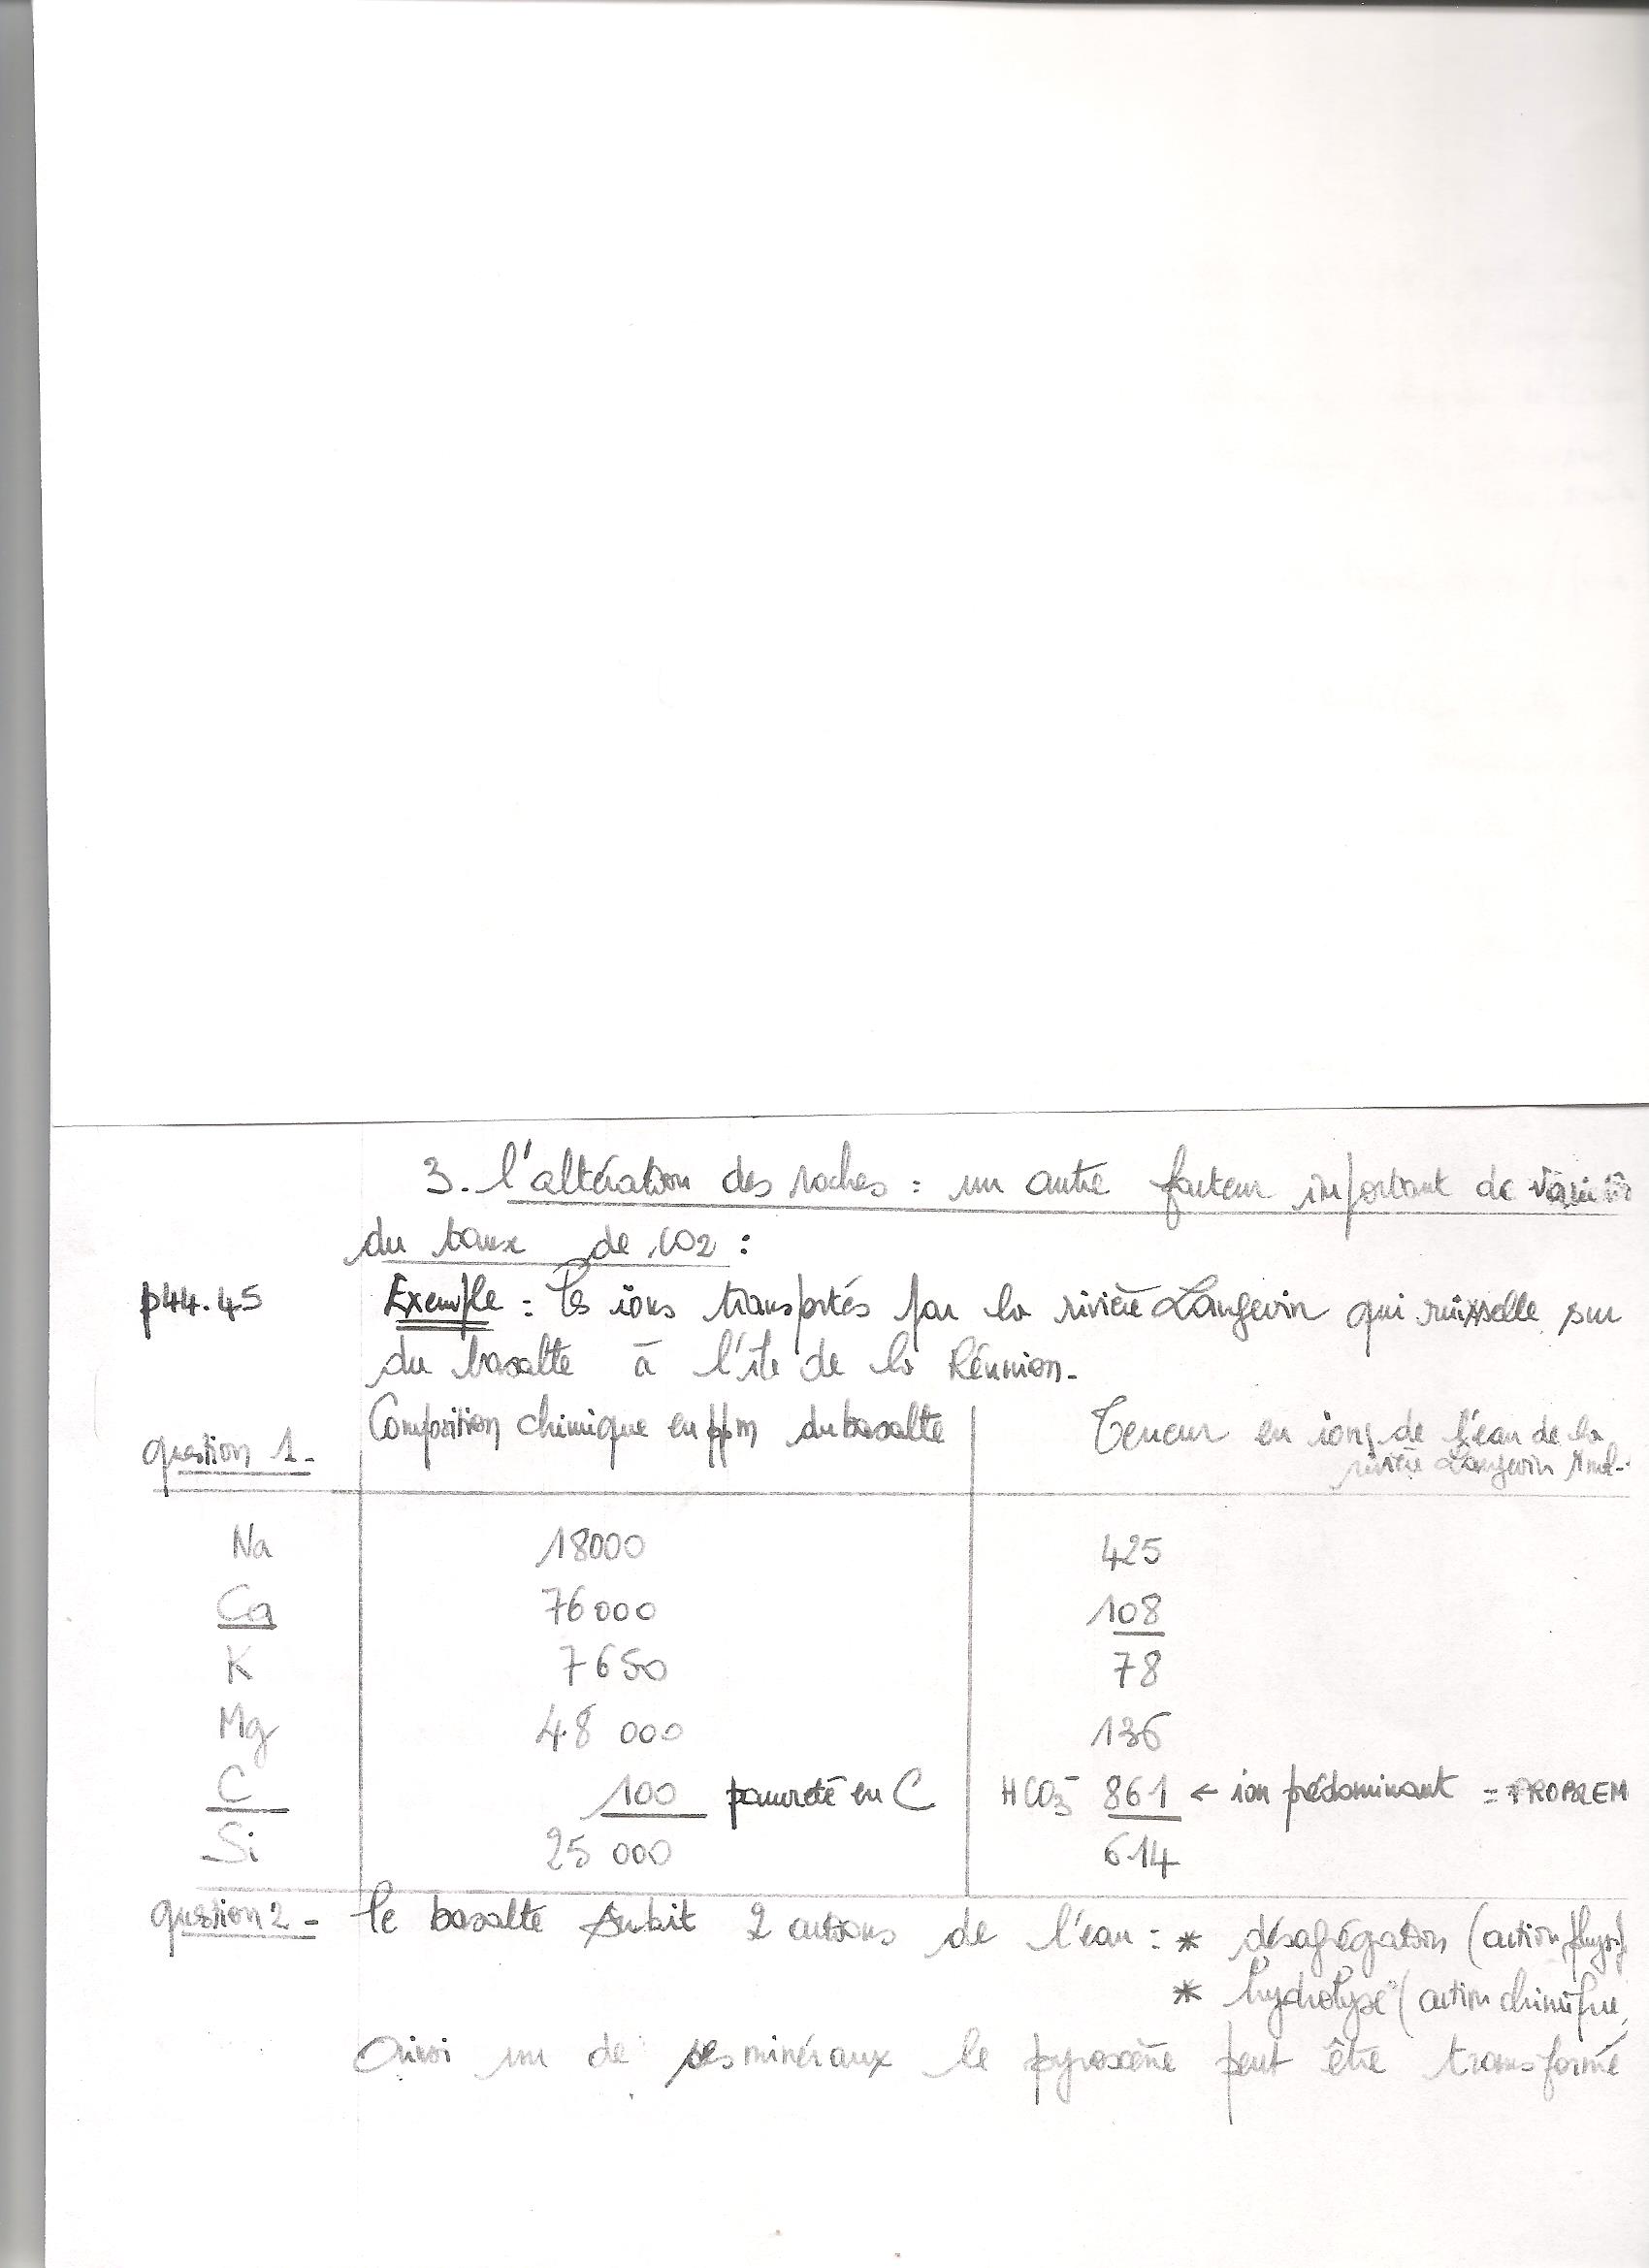 3. l'altération des roches : un autre facteur important de
du taux de CO2 :
p44.45 Exemple : les ions transportés par la rivière Langevin qui ruisselle sur
du basalte à l'île de la Réunion.
question 1. Composition chimique en ppm du basalte Teneur en ions de l'eau de la
rivière Langevin
Na 18000 425
Ca 76000 108
K 7650 78
Mg 48 000 136
C 100 pauvreté en C HCO3- 861 ← ion prédominant = PROBLEM
Si 25 000 614
question 2 - le basalte subit 2 actions de l'eau : * désagrégation (action
* hydrolyse (action chimique
Ainsi un de ses minéraux le pyroxène peut être transformé